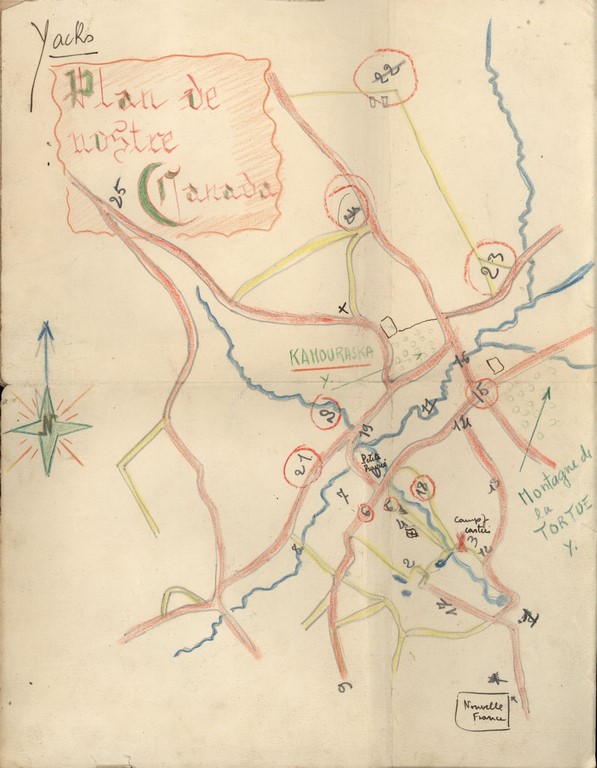 Yacks
Plan de
nostre
Canada
22
25
23
X
KAMOURASKA
Y.
16
15
20
19
17
14
21
Petits
18
13
7
6
Montagne de
la
TORTUE
Y.
5
4
3
12
8
2
9
N
Nouvelle
France